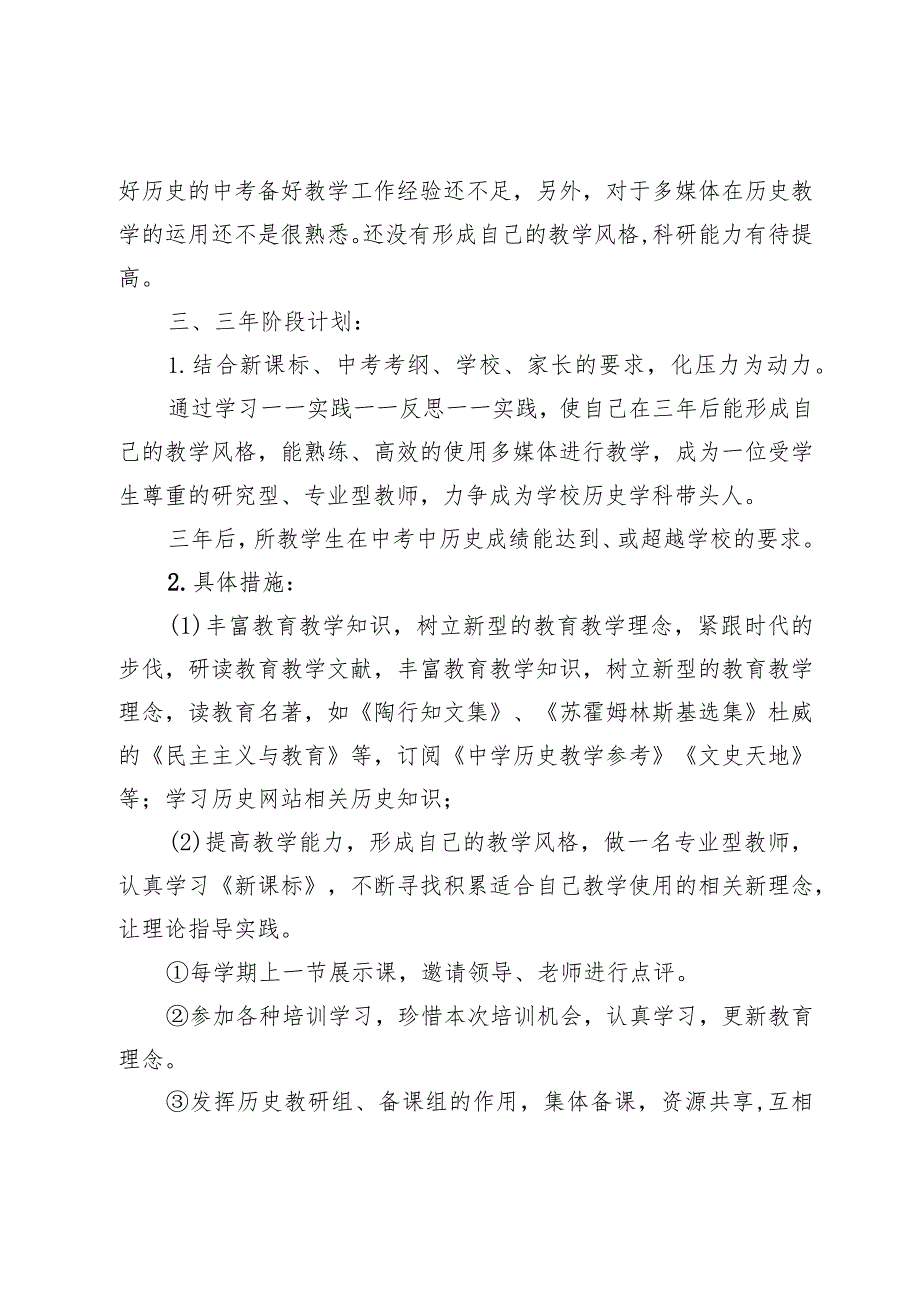 好历史的中考备好教学工作经验还不足，另外，对于多媒体在历史教
学的运用还不是很熟悉。还没有形成自己的教学风格,科研能力有待提
高。
三、三年阶段计划：
1.结合新课标、中考考纲、学校、家长的要求，化压力为动力。
通过学习一一实践一一反思一一实践，使自己在三年后能形成自
己的教学风格，能熟练、高效的使用多媒体进行教学，成为一位受学
生尊重的研究型、专业型教师，力争成为学校历史学科带头人。
三年后,所教学生在中考中历史成绩能达到、或超越学校的要求。
2.具体措施：
(1)丰富教育教学知识，树立新型的教育教学理念，紧跟时代的
步伐，研读教育教学文献，丰富教育教学知识，树立新型的教育教学
理念，读教育名著，如《陶行知文集》、《苏霍姆林斯基选集》杜威
的《民主主义与教育》等，订阅《中学历史教学参考》《文史天地》
等；学习历史网站相关历史知识；
(2)提高教学能力，形成自己的教学风格，做一名专业型教师，
认真学习《新课标》，不断寻找积累适合自己教学使用的相关新理念，
让理论指导实践。
①每学期上一节展示课，邀请领导、老师进行点评。
②参加各种培训学习，珍惜本次培训机会，认真学习，更新教育
理念。
③发挥历史教研组、备课组的作用，集体备课，资源共享,互相